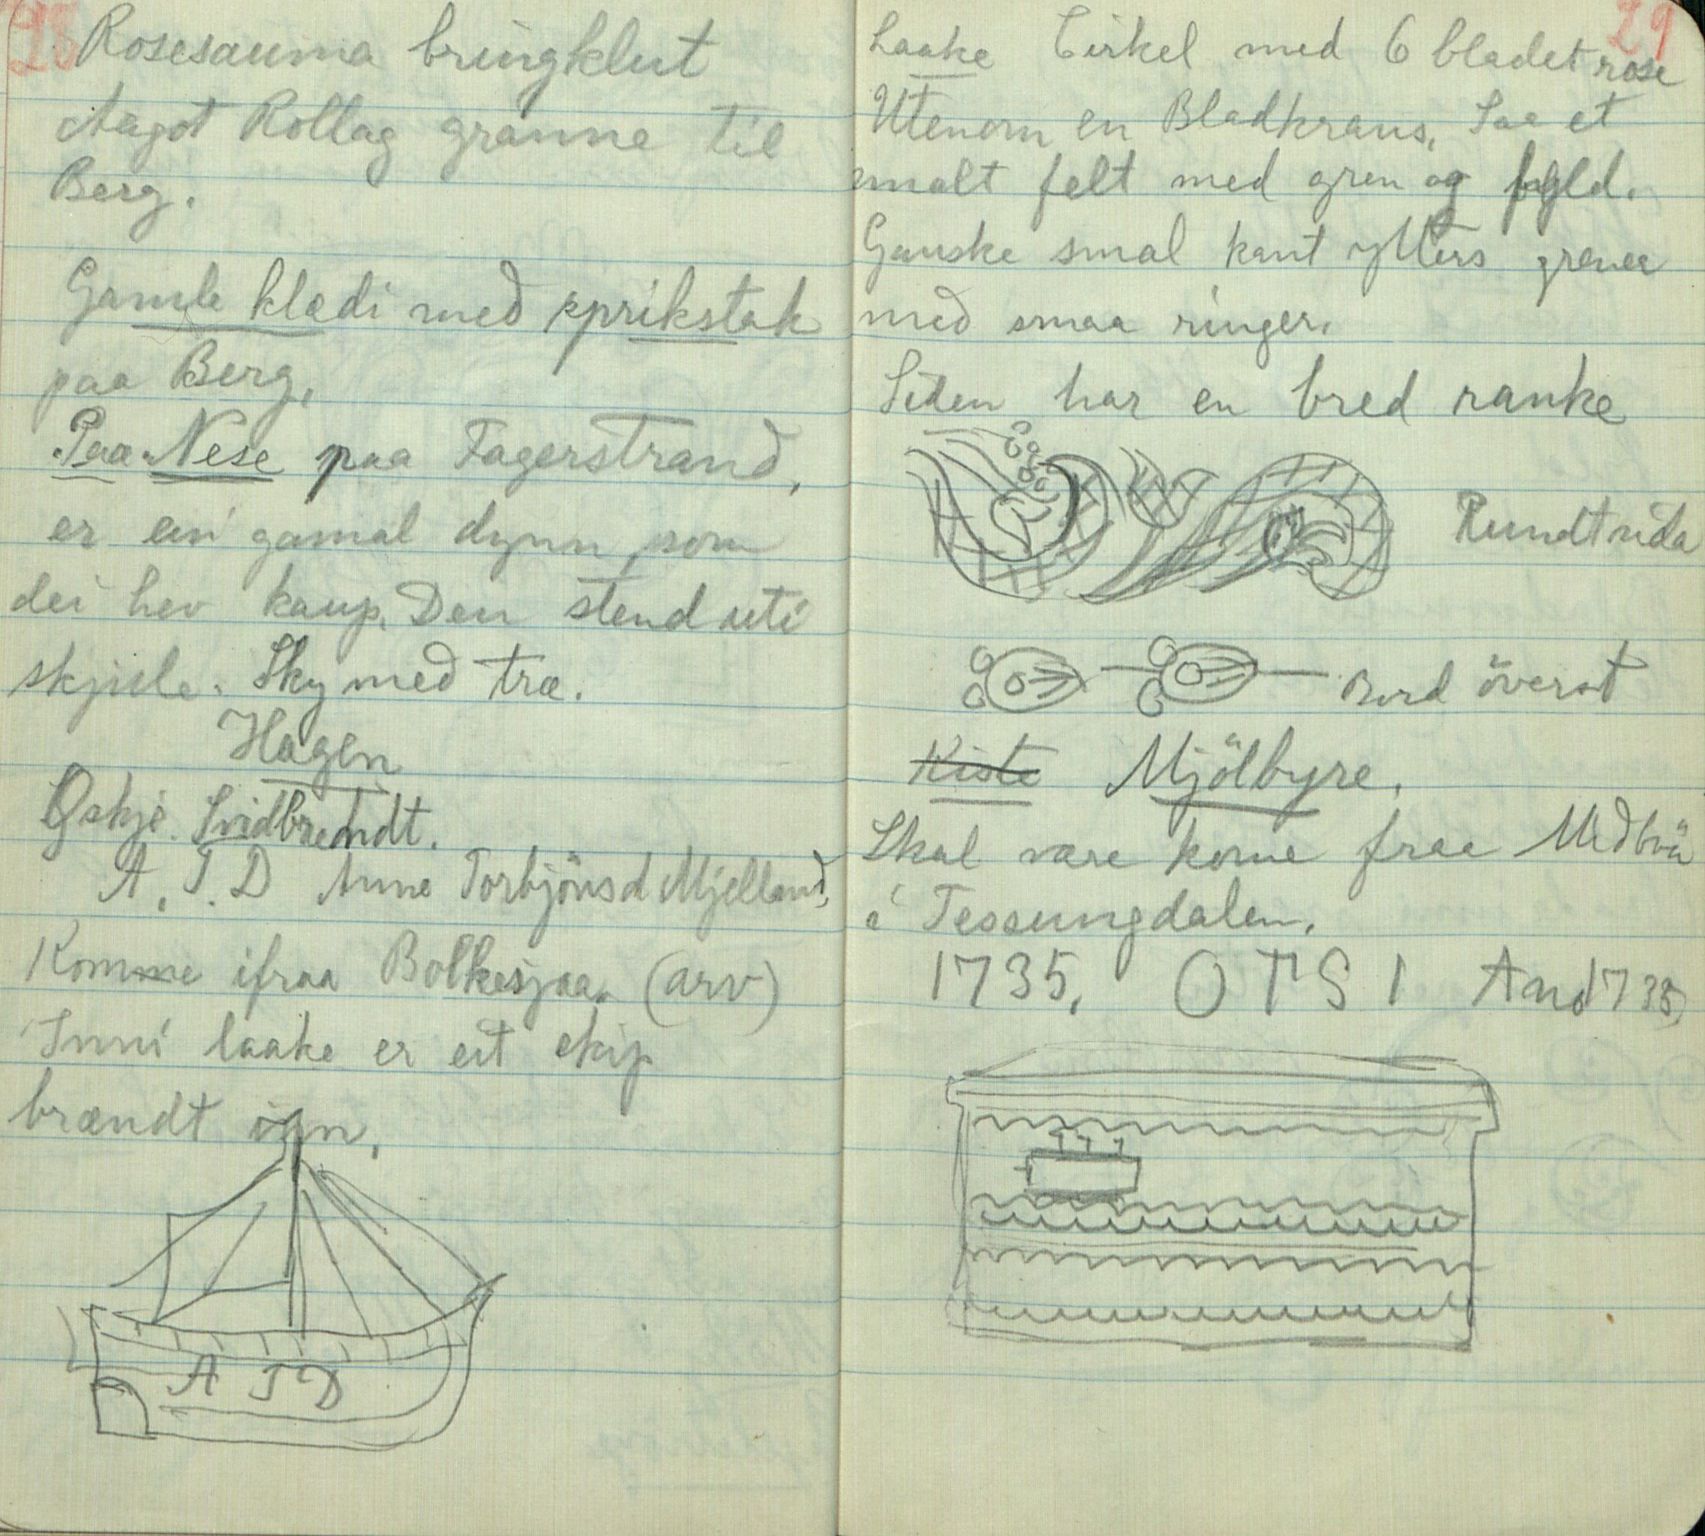 28
Rosesauma bringklut
Aagot Rollag granne til
Berg.
Gamle klædi med sprikstak
paa Berg.
Paa Nese paa Fagerstrand,
er ein gamal dynn som
dei hev kaup. Den stend uti
skjule. Sky med træ.
Hagen
Øskje. Svidbrendt.
A. T. D Anne Torbjönsd Mjelland,
Komme ifraa Bolkesjaa. (arv)
Inni laake er eit skip
brændt inn.
A T D
29
Laake Cirkel med 6 bladet rose
Utenom en Bladkrans. Saa et
smalt felt med gren og
Ganske smal kant ytters grener
med smaa ringer.
Siden har en bred ranke
Rundt sida
Bord överst
Kiste Mjölbyre.
Skal være kome fraa
i Tessungdalen.
1735. O T S I And 1735